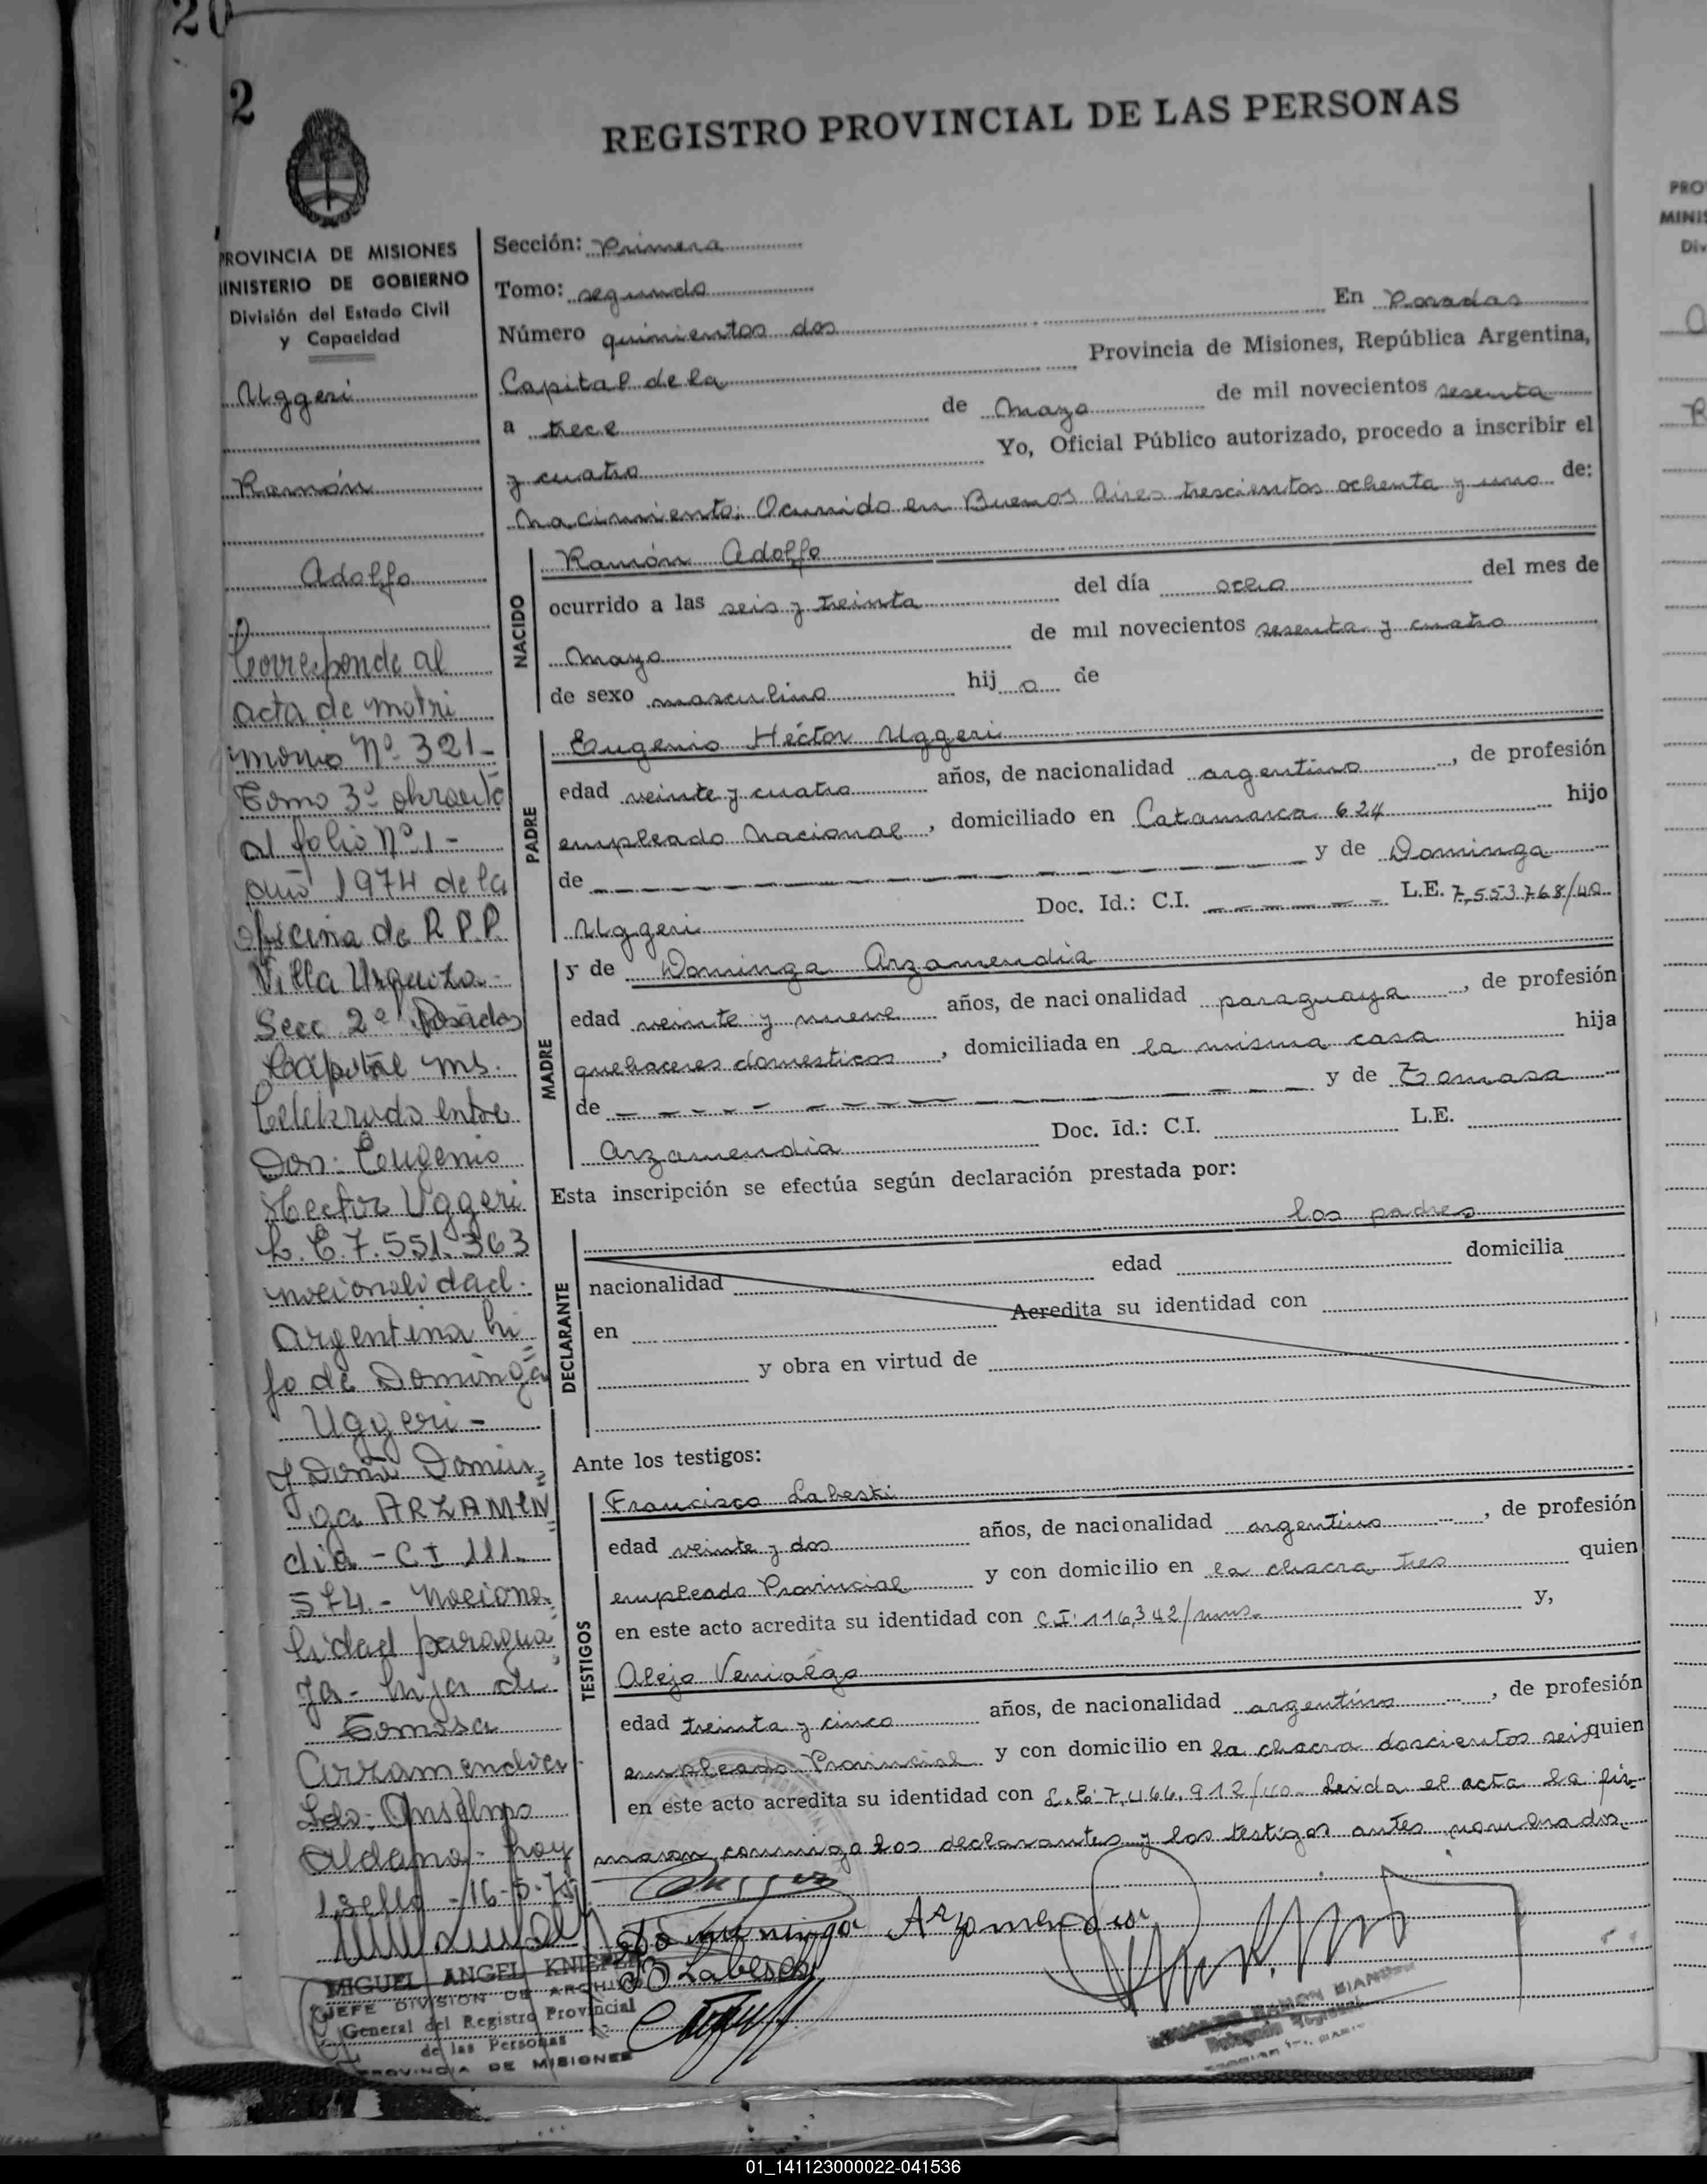 20
2
REGISTRO PROVINCIAL DE LAS PERSONAS
PROVINCIA DE MISIONES
MINISTERIO DE GOBIERNO
División del Estado Civil
y Capacidad
Uggeri
Ramón
Adolfo
Corresponde al
acta de matri
monio Nº 321-
Tomo 3º
al folio Nº 1-
año 1974 de la
oficina de R.P.P.
Villa Urquiza-
Secc 2º Posadas
Capital ms.
Celebrado entre
Don: Eugenio
Hector Uggeri
L.E. 7.551.363
nacionalidad
argentina hi
jo de Dominga
Uggeri-
y Doña Domin
ga ARZAMEN
dia - CI 111.
574.- Naciona
lidad paragua
ya- hija de
Tomasa
Arzamendia
Ldo: Anselmo
Aldana- hoy
1 sello -16-5-75
MIGUEL ANGEL
JEFE DIVISION DE ARCHIVO
General del Registro Provincial
de las Personas
PROVINCIA DE MISIONES
Sección: Primera
Tomo: segundo
Número quinientos dos En Posadas
Capital de la Provincia de Misiones, República Argentina,
a trece de Mayo de mil novecientos sesenta
y cuatro Yo, Oficial Público autorizado, procedo a inscribir el
nacimiento: Ocurrido en Buenos Aires trescientos ochenta y uno de:
NACIDO
Ramón Adolfo
ocurrido a las seis y treinta del día ocho del mes de
Mayo de mil novecientos sesenta y cuatro
de sexo masculino hij o de
PADRE
Eugenio Héctor Uggeri
edad veinte y cuatro años, de nacionalidad argentino, de profesión
empleado Nacional, domiciliado en Catamarca 624 hijo
de - - - - - - y de Dominga
Uggeri Doc. Id.: C.I. - - - - - - L.E. 7,553.768/40
MADRE
y de Dominga Arzamendia
edad veinte y nueve años, de nacionalidad paraguaya, de profesión
quehaceres domesticos, domiciliada en la misma casa hija
de - - - - - - y de Tomasa
Arzamendia Doc. Id.: C.I. L.E.
Esta inscripción se efectúa según declaración prestada por:
DECLARANTE
los padres
nacionalidad edad domicilia
en Acredita su identidad con
y obra en virtud de
Ante los testigos:
TESTIGOS
Francisco Labeski
edad veinte y dos años, de nacionalidad argentino, de profesión
empleado Provincial y con domicilio en la chacra tres quien
en este acto acredita su identidad con C.I: 116,342/mns. y,
Alejo Venialgo
edad treinta y cinco años, de nacionalidad argentino, de profesión
empleado Provincial y con domicilio en la chacra doscientos seis quien
en este acto acredita su identidad con L.E: 7,466,912/40- Leida el acta la fir-
maron conmigo los declarantes y los testigos antes nomenados.
Dominga Arzamendia
Labeski
01_141123000022-041536